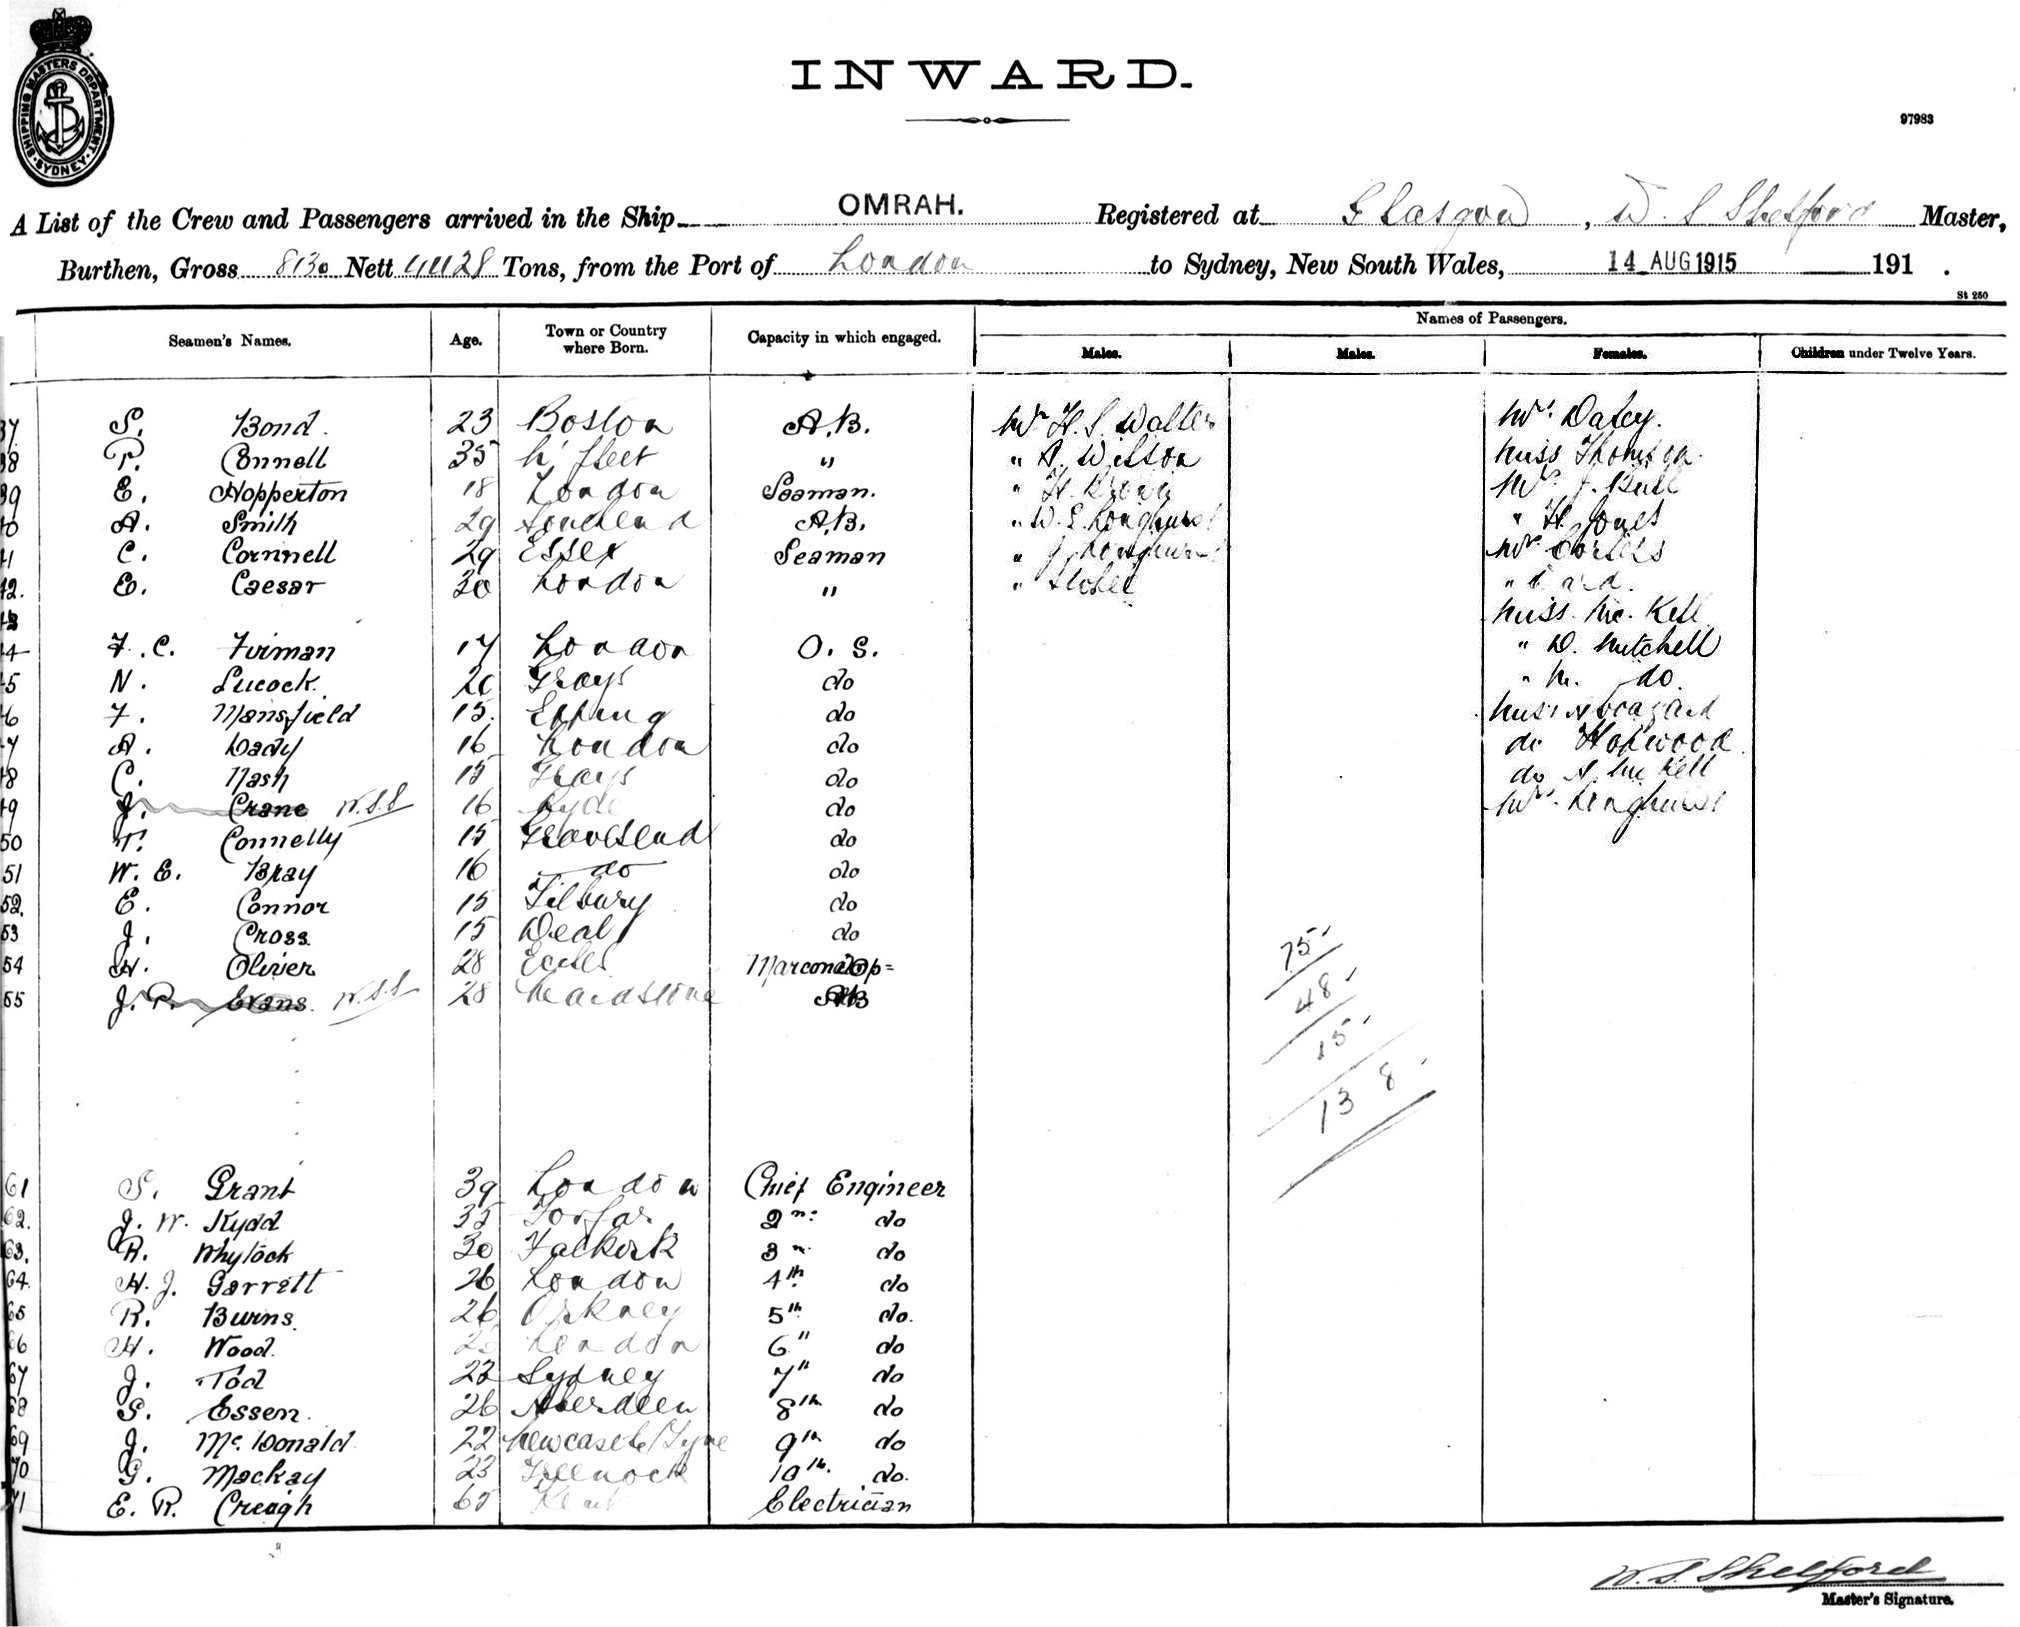 SHIPPING MASTERS DEPARTMENT · SYDNEY ·
INWARD.
97983
A List of the Crew and Passengers arrived in the Ship OMRAH. Registered at Glasgow, W. S Shelford Master,
Burthen, Gross 8130 Nett 4428 Tons, from the Port of London to Sydney, New South Wales, 14 AUG 1915 191 .
St 250
Seamen's Names. Age. Town or Country where Born. Capacity in which engaged. Names of Passengers.
Males. Males. Females. Children under Twelve Years.
37 S. Bond. 23 Boston A.B. Mr H. S. Walter Mrs Daley.
38 P. Connell 35 N' fleet " " A. Wilson Miss Thomson.
39 E. Hopperton 18 London Seaman. " H. Brown Mrs J. Bull
40 A. Smith 29 Southend A.B. " W. E. Longhurst " H. Jones
41 C. Cornnell 29 Essex Seaman " J. Longhurst Mrs
42. E. Caesar 30 London " "
43 Miss Mc. Kell
44 F. C. Firman 17 London O. S. " D. Mitchell
45 N. Lucock. 20 Grays do " M. do.
46 F. Mansfield 15. Epping do Miss
47 A. Dady 16 London do do Hopwood.
48 C. Nash 15 Grays do do A. McKell
49 J. Crane W.S.S 16 Ryde do Mrs. Longhurst
50 T. Connelly 15 Gravesend do
51 W. E. Bray 16 do do
52. E. Connor 15 Tilbury do
53 J. Cross. 15 Deal do
54 H. Olivier 28 Eccles Marconi Op=
55 J. P. Evans. W.S.S 28 Maidstone AB
75
48
15
138
61 S. Grant 39 London Chief Engineer
62. J. W. Kydd 35 Forfar 2n. do
63. R. Whylock 30 Falkirk 3 do
64. H. J. Garrett 26 London 4th do
65 R. Burns. 26 Orkney 5th do.
66 H. Wood. London 6" do
67 J. Tod 22 Sydney 7" do
68 G. Essen. 26 Aberdeen 8th do
69 J. McDonald. 22 Newcastle/Tyne 9th do
70 G. Mackay 23 Greenock 10th. do.
71 E. R. Creagh 65 Kent Electrician
W. S. Shelford
Master's Signature.